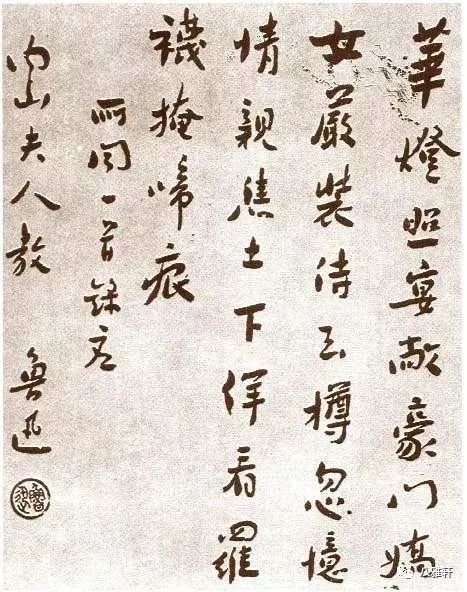 華燈照宴敞豪門嬌
女嚴裝侍玉樽忽憶
情親焦土下佯看羅
襪掩啼痕
所聞一首錄
內山夫人教 魯迅
魯迅
雅轩